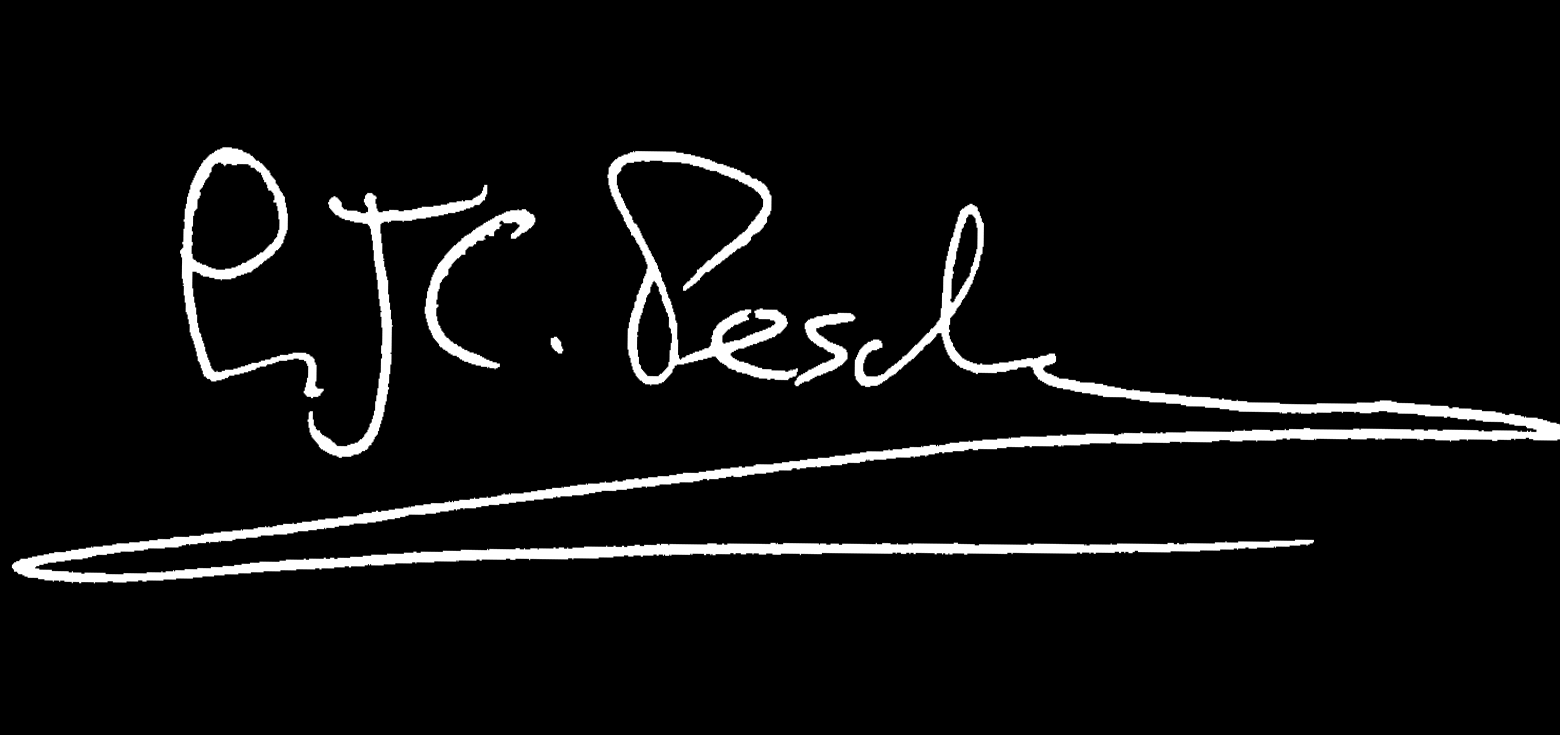 P.JC. Pesch